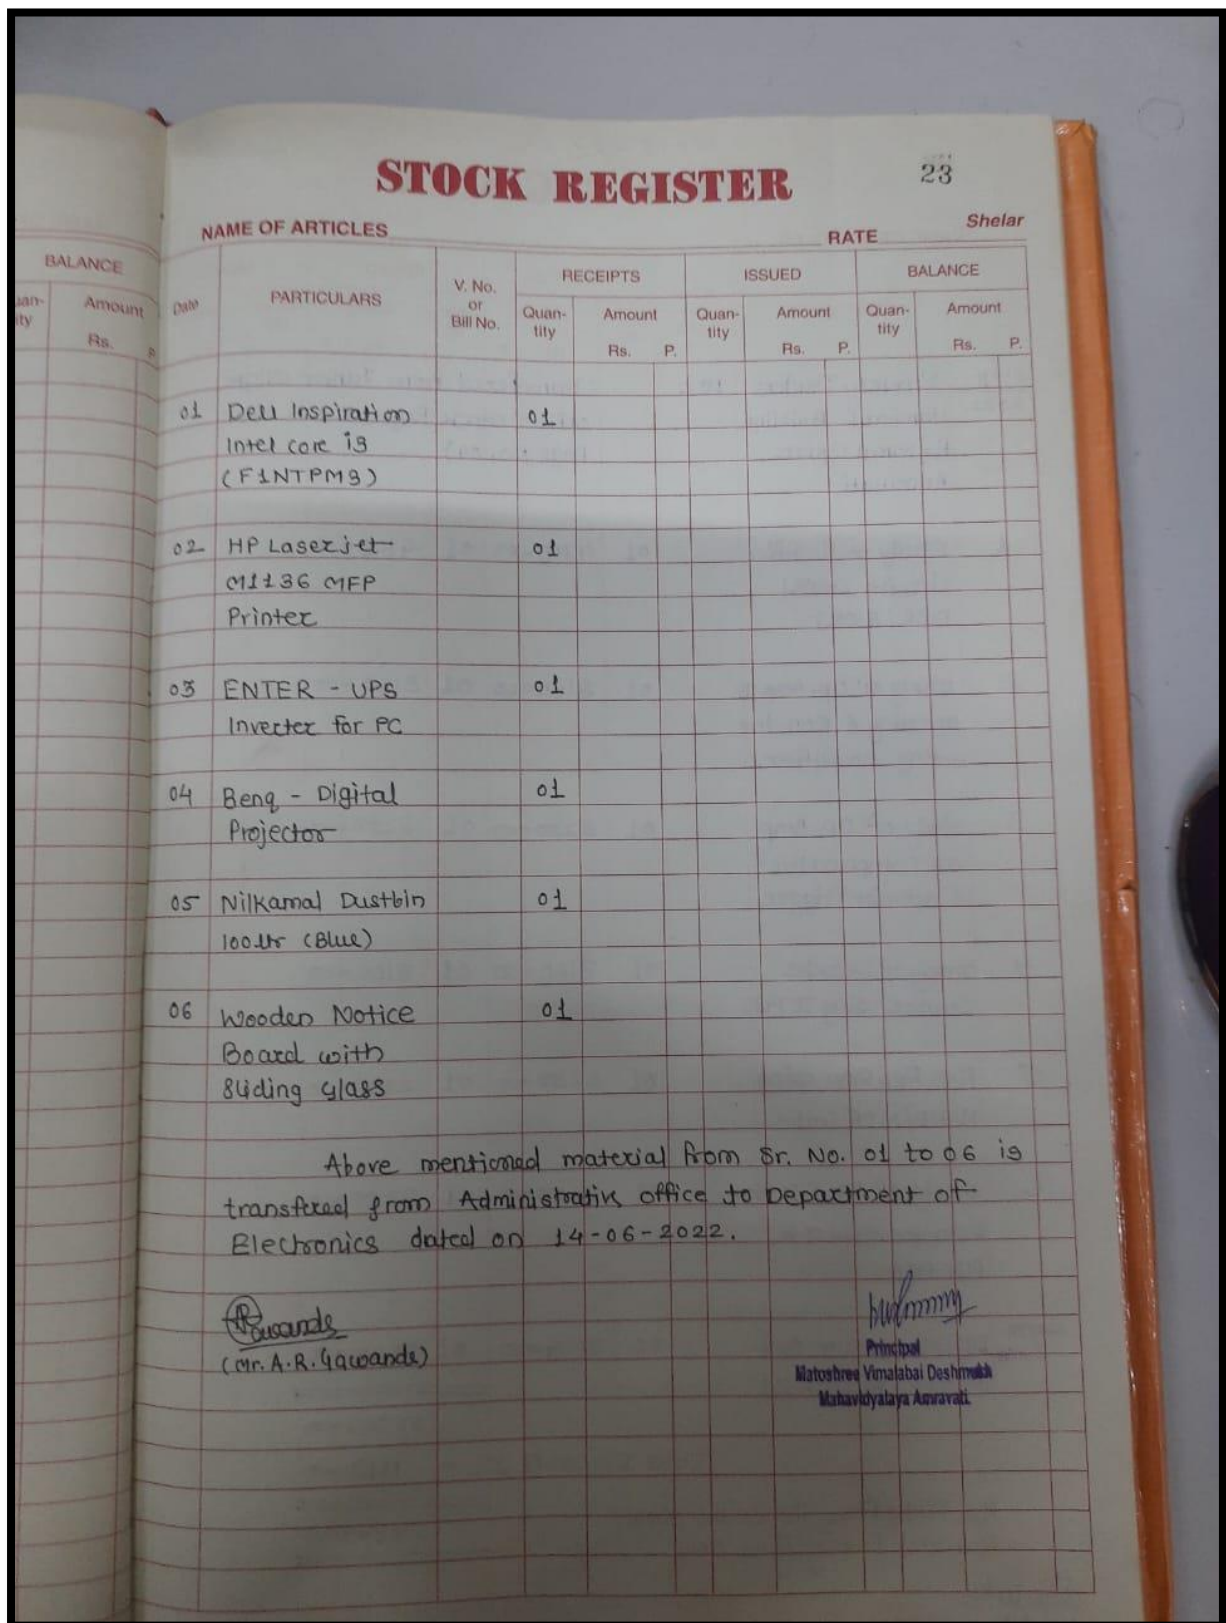 STOCK REGISTER 23
Shelar
NAME OF ARTICLES RATE
BALANCE
Amount
Rs. P.
Date PARTICULARS V. No. or Bill No. RECEIPTS ISSUED BALANCE
Quan-tity Amount Quan-tity Amount Quan-tity Amount
Rs. P. Rs. P. Rs. P.
01 Dell Inspiration 01
Intel core i3
(F1NTPM3)
02 HP Laserjet 01
M1136 MFP
Printer
03 ENTER - UPS 01
Inverter for PC
04 Benq - Digital 01
Projector
05 Nilkamal Dustbin 01
100 ltr (Blue)
06 Wooden Notice 01
Board with
Sliding glass
Above mentioned material from Sr. No. 01 to 06 is
transfered from Administrativ office to Department of
Electronics dated on 14-06-2022.
(Mr. A.R. Gawande)
Principal
Matoshree Vimalabai Deshmukh
Mahavidyalaya Amravati.